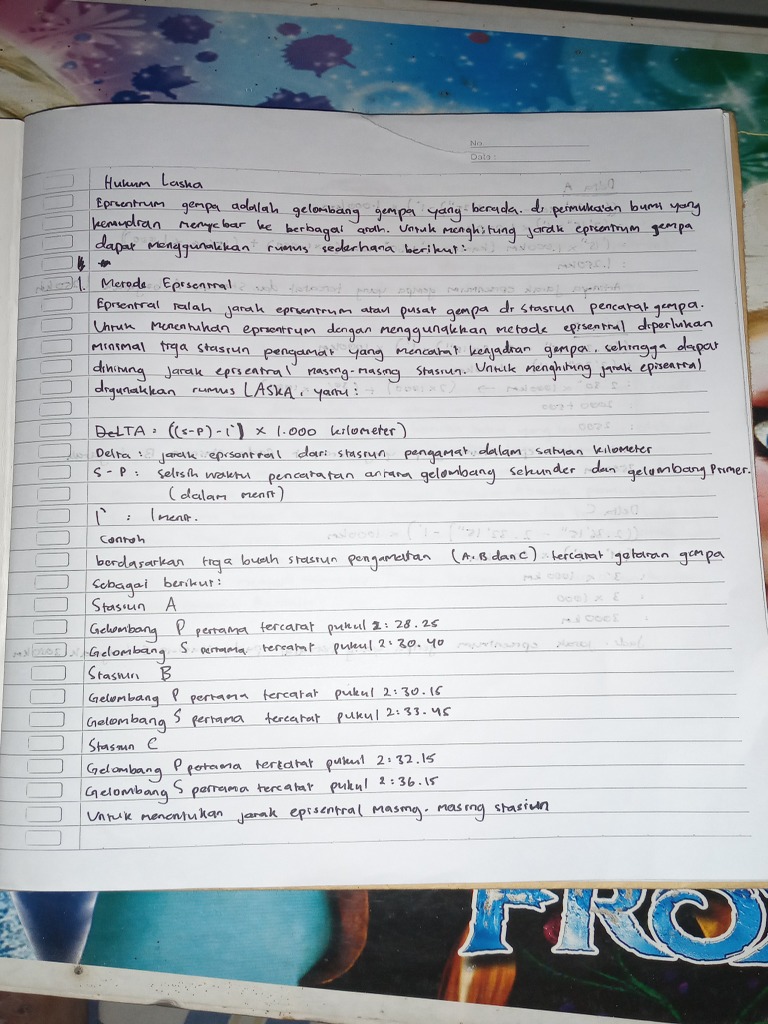 No.
Date:
Hukum Laska
Episentrum gempa adalah gelombang gempa yang berada di permukaan bumi yang
kemudian menyebar ke berbagai arah. Untuk menghitung jarak episentrum gempa
dapat menggunakkan rumus sederhana berikut:
1. Metode Episentral
Episentral ialah jarak episentrum atau pusat gempa di stasiun pencatat gempa.
Untuk menentukan episentrum dengan menggunakkan metode episentral diperlukan
minimal tiga stasiun pengamat yang mencatat kenjadian gempa, sehingga dapat
dihitung jarak episentral masing-masing stasiun. Untuk menghitung jarak episentral
digunakkan rumus LASKA, yaitu:
DeLTA : ((s-p) - 1') × 1.000 kilometer)
Delta : jarak episentral dari stasiun pengamat dalam satuan kilometer
S - P : selisih waktu pencatatan antara gelombang sekunder dan gelombang Primer.
(dalam menit)
1' : 1 menit.
Contoh
berdasarkan tiga buah stasiun pengamatan (A, B dan C) tercatat getaran gempa
sebagai berikut:
Stasiun A
Gelombang P pertama tercatat pukul 2: 28.25
Gelombang S pertama tercatat pukul 2:30.40
Stasiun B
Gelombang P pertama tercatat pukul 2:30.15
Gelombang S pertama tercatat pukul 2:33.45
Stasiun C
Gelombang P pertama tercatat pukul 2:32.15
Gelombang S pertama tercatat pukul 2:36.15
Untuk menentukan jarak episentral masing-masing stasiun
FRO